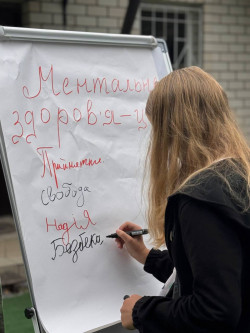 Ментальн
здоров'я – ц
Прийняття.
Свобода
Надія
Безпека